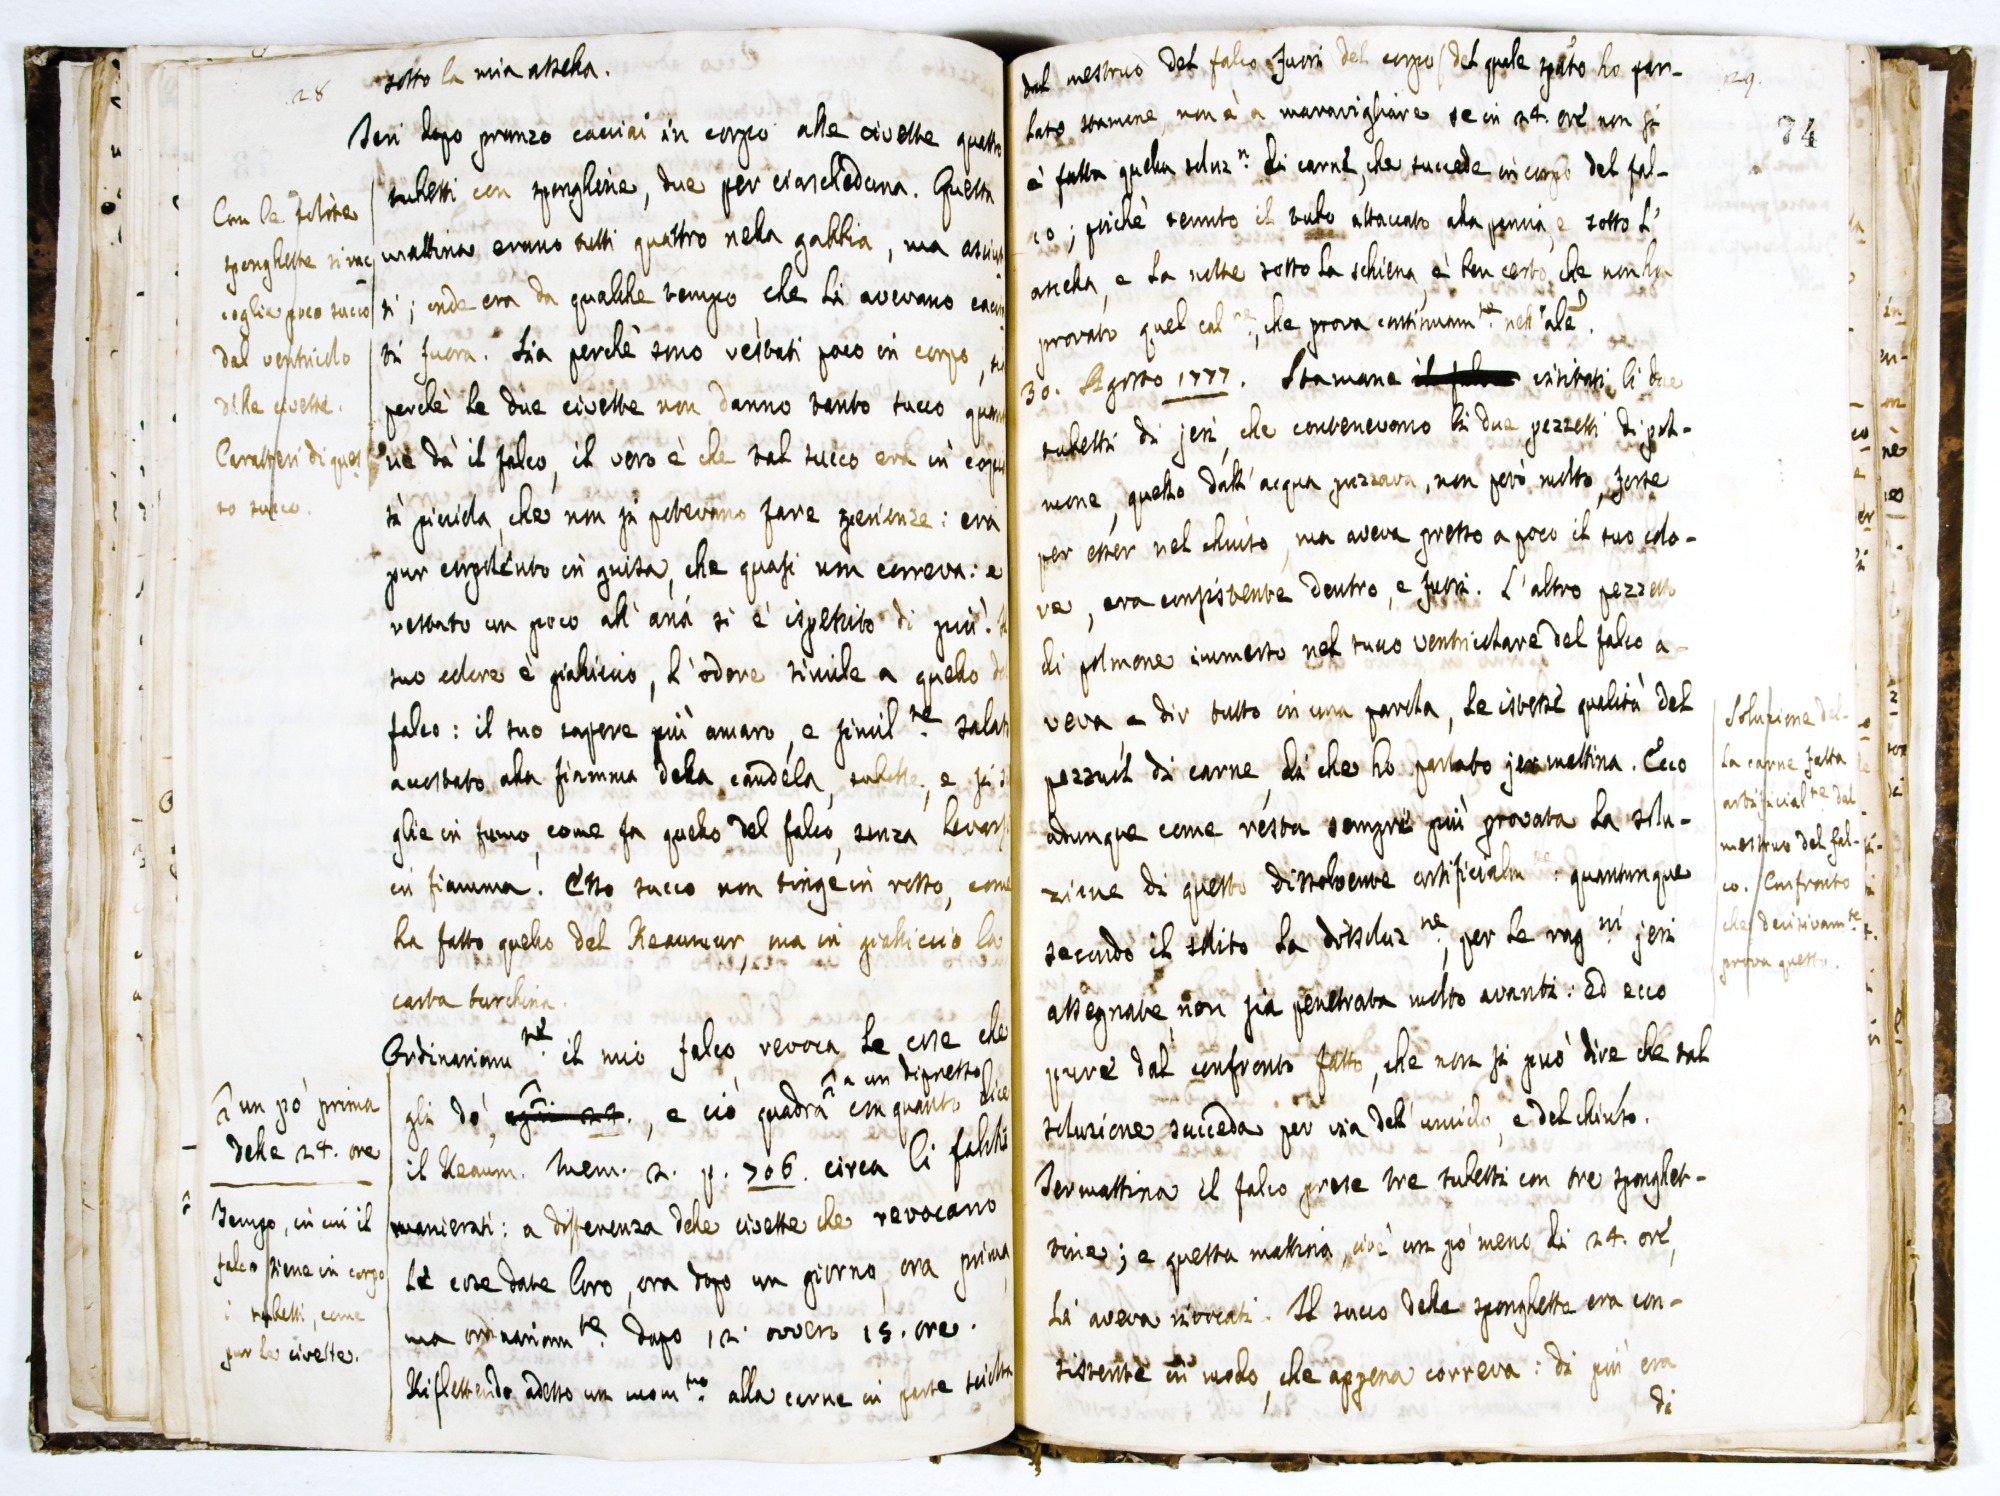 28
sotto la mia ascella.
Ieri dopo pranzo cacciai in corpo alle civette quattro
tubetti con sponghine, due per ciascheduna. Questa
mattina erano tutti quattro nella gabbia, ma asciut
ti; onde era da qualche tempo, che li avevano cacia
ti fuora. Sia perchè sono restati poco in corpo, sia
perchè le due civette non danno tanto succo quan
ne dà il falco, il vero è che tal succo era in copia
sì piccola, che non si potevano fare sperienze: era
pur corpolento in guisa, che quasi non correva: e
restato un poco all' aria si è ispessito di più. Il
suo colore è gialliccio, l'odore simile a quello del
falco: il suo sapore più amaro, e simil.te salato
accostato alla fiamma della candela, bolle, e si s
glie in fumo, come fa quello del falco, senza levarsi
in fiamma. Esso succo non tinge in rosso, come
ha fatto quello del Reaumur, ma in gialliccio la
carta turchina.
Ordinariam.te il mio falco revoca le cose che
gli do, ogni 24., e ciò quadra a un dipresso con quanto dice
il Reaum. Mem. 2. p. 706. circa li falchi
manierati: a differenza delle civette che revocano
le cose date loro, ora dopo un giorno, ora prima,
ma ordinariam.te dopo 12. ovvero 15. ore.
Riflettendo adesso un mom.to alla carne in parte sciolta
Con le solite
sponghette si rac
coglie poco succo
dal ventricolo
delle civette.
Caratteri di ques
to succo.
un pò prima
delle 24. ore
Tempo, in cui il
falco tiene in corpo
i tubetti, come
pur le civette.
29.
74
dal mestruo del falco fuori del corpo (del quale sputo ho par-
lato stamane, non è a maravigliare se in 24. ore non si
è fatta quella soluz.ne di carne, che succede in corpo del fal-
co; poichè tenuto il tubo attaccato alla pancia, e sotto l'
ascella, e la notte sotto la schiena, è ben certo, che non ha
provato quel cal.re, che prova continuam.te nell' ale.
30. Agosto 1777. Stamane il falco visitati li due
tubetti di jeri, che contenevano li due pezzetti di pol-
mone, quello dell' acqua puzzava, non però molto, forse
per esser nel chiuso, ma aveva presso a poco il suo colo-
re, era consistente dentro, e fuori. L'altro pezzetto
di polmone immerso nel succo ventricolare del falco a-
veva a dir tutto in una parola, le istesse qualità del
pezzuol di carne, di che ho parlato jermattina. Ecco
adunque come resta sempre più provata la solu-
zione di questo dissolvente artificialm.te: quantunque
secondo il solito la dissoluz.ne, per le rag.ni jeri
assegnate, non sia penetrata molto avanti: Ed ecco
pure dal confronto fatto, che non si può dire che tal
soluzione succeda per via dell' umido, e del chiuso.
Jermattina il falco prese tre tubetti con tre sponghet-
tine; e questa mattina, cioè un pò meno di 24. ore,
li aveva rivocati. Il succo delle sponghette era con-
sistente in modo, che appena correva: di più era
di
Soluzione del-
la carne fatta
artificial.te dal
mestruo del fal-
co. Confronto
che decisivam.te
prova questo.